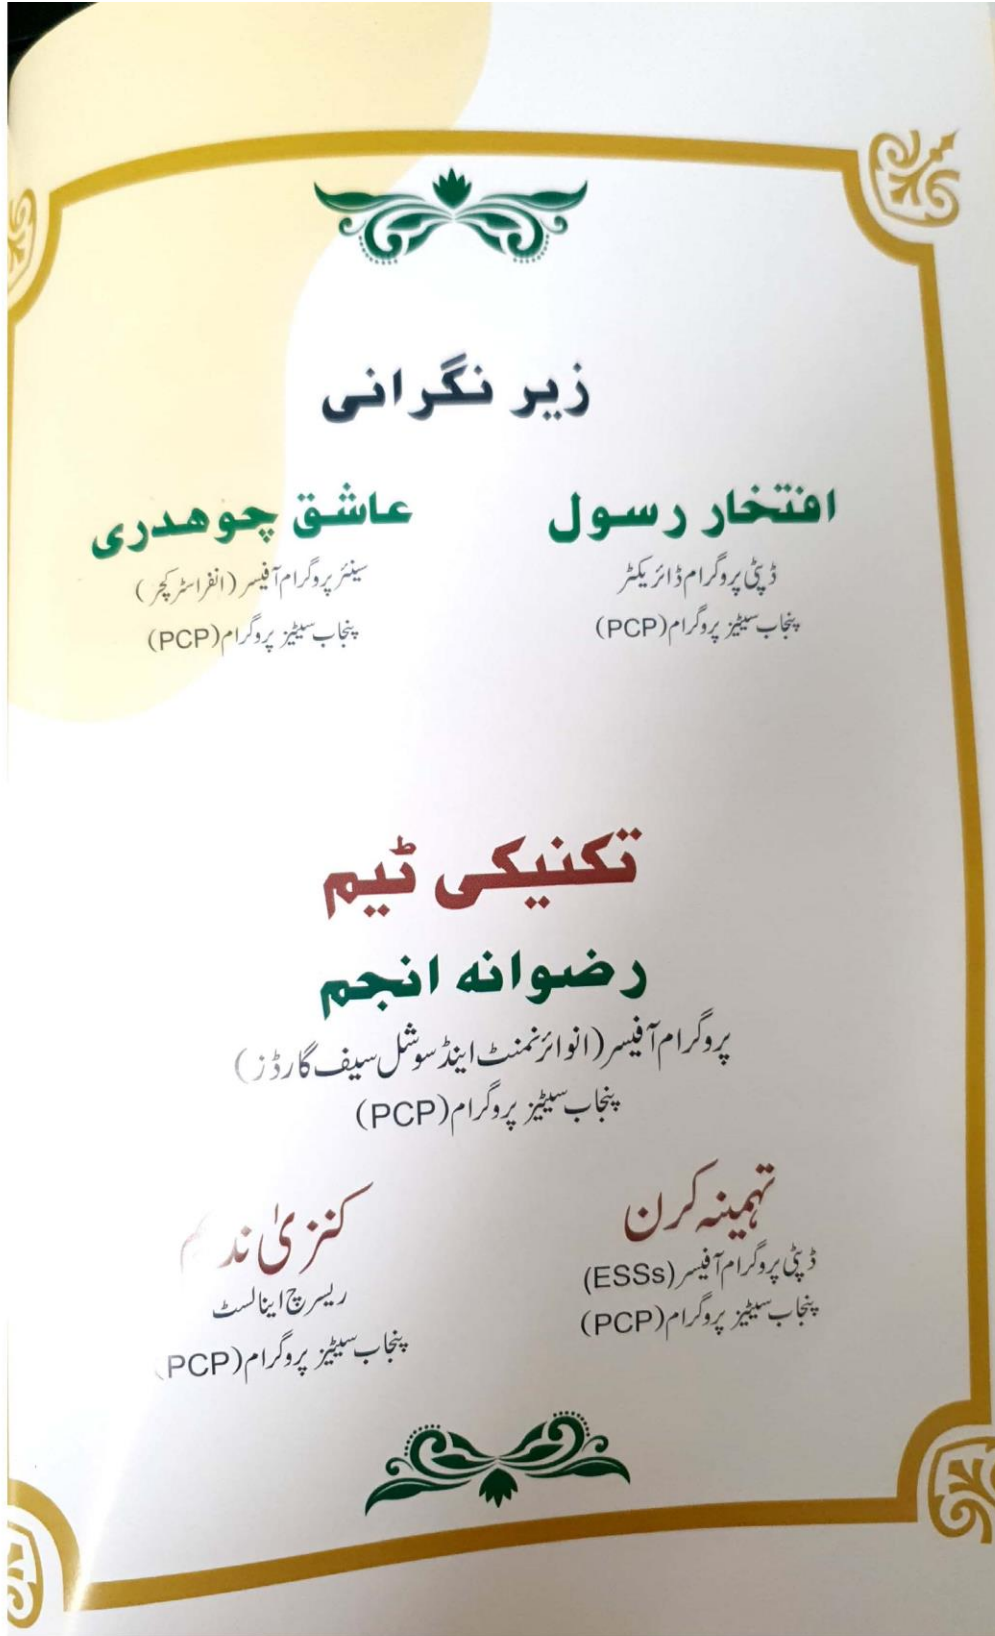 زیر نگرانی
افتخار رسول
ڈپٹی پروگرام ڈائریکٹر
پنجاب سیٹیز پروگرام (PCP)
عاشق چوھدری
سینئر پروگرام آفیسر (انفراسٹرکچر)
پنجاب سیٹیز پروگرام (PCP)
تکنیکی ٹیم
رضوانہ انجم
پروگرام آفیسر (انوائرنمنٹ اینڈ سوشل سیف گارڈز)
پنجاب سیٹیز پروگرام (PCP)
تہمینہ کرن
ڈپٹی پروگرام آفیسر (ESSs)
پنجاب سیٹیز پروگرام (PCP)
کنزیٰ
ریسرچ اینالسٹ
پنجاب سیٹیز پروگرام (PCP)